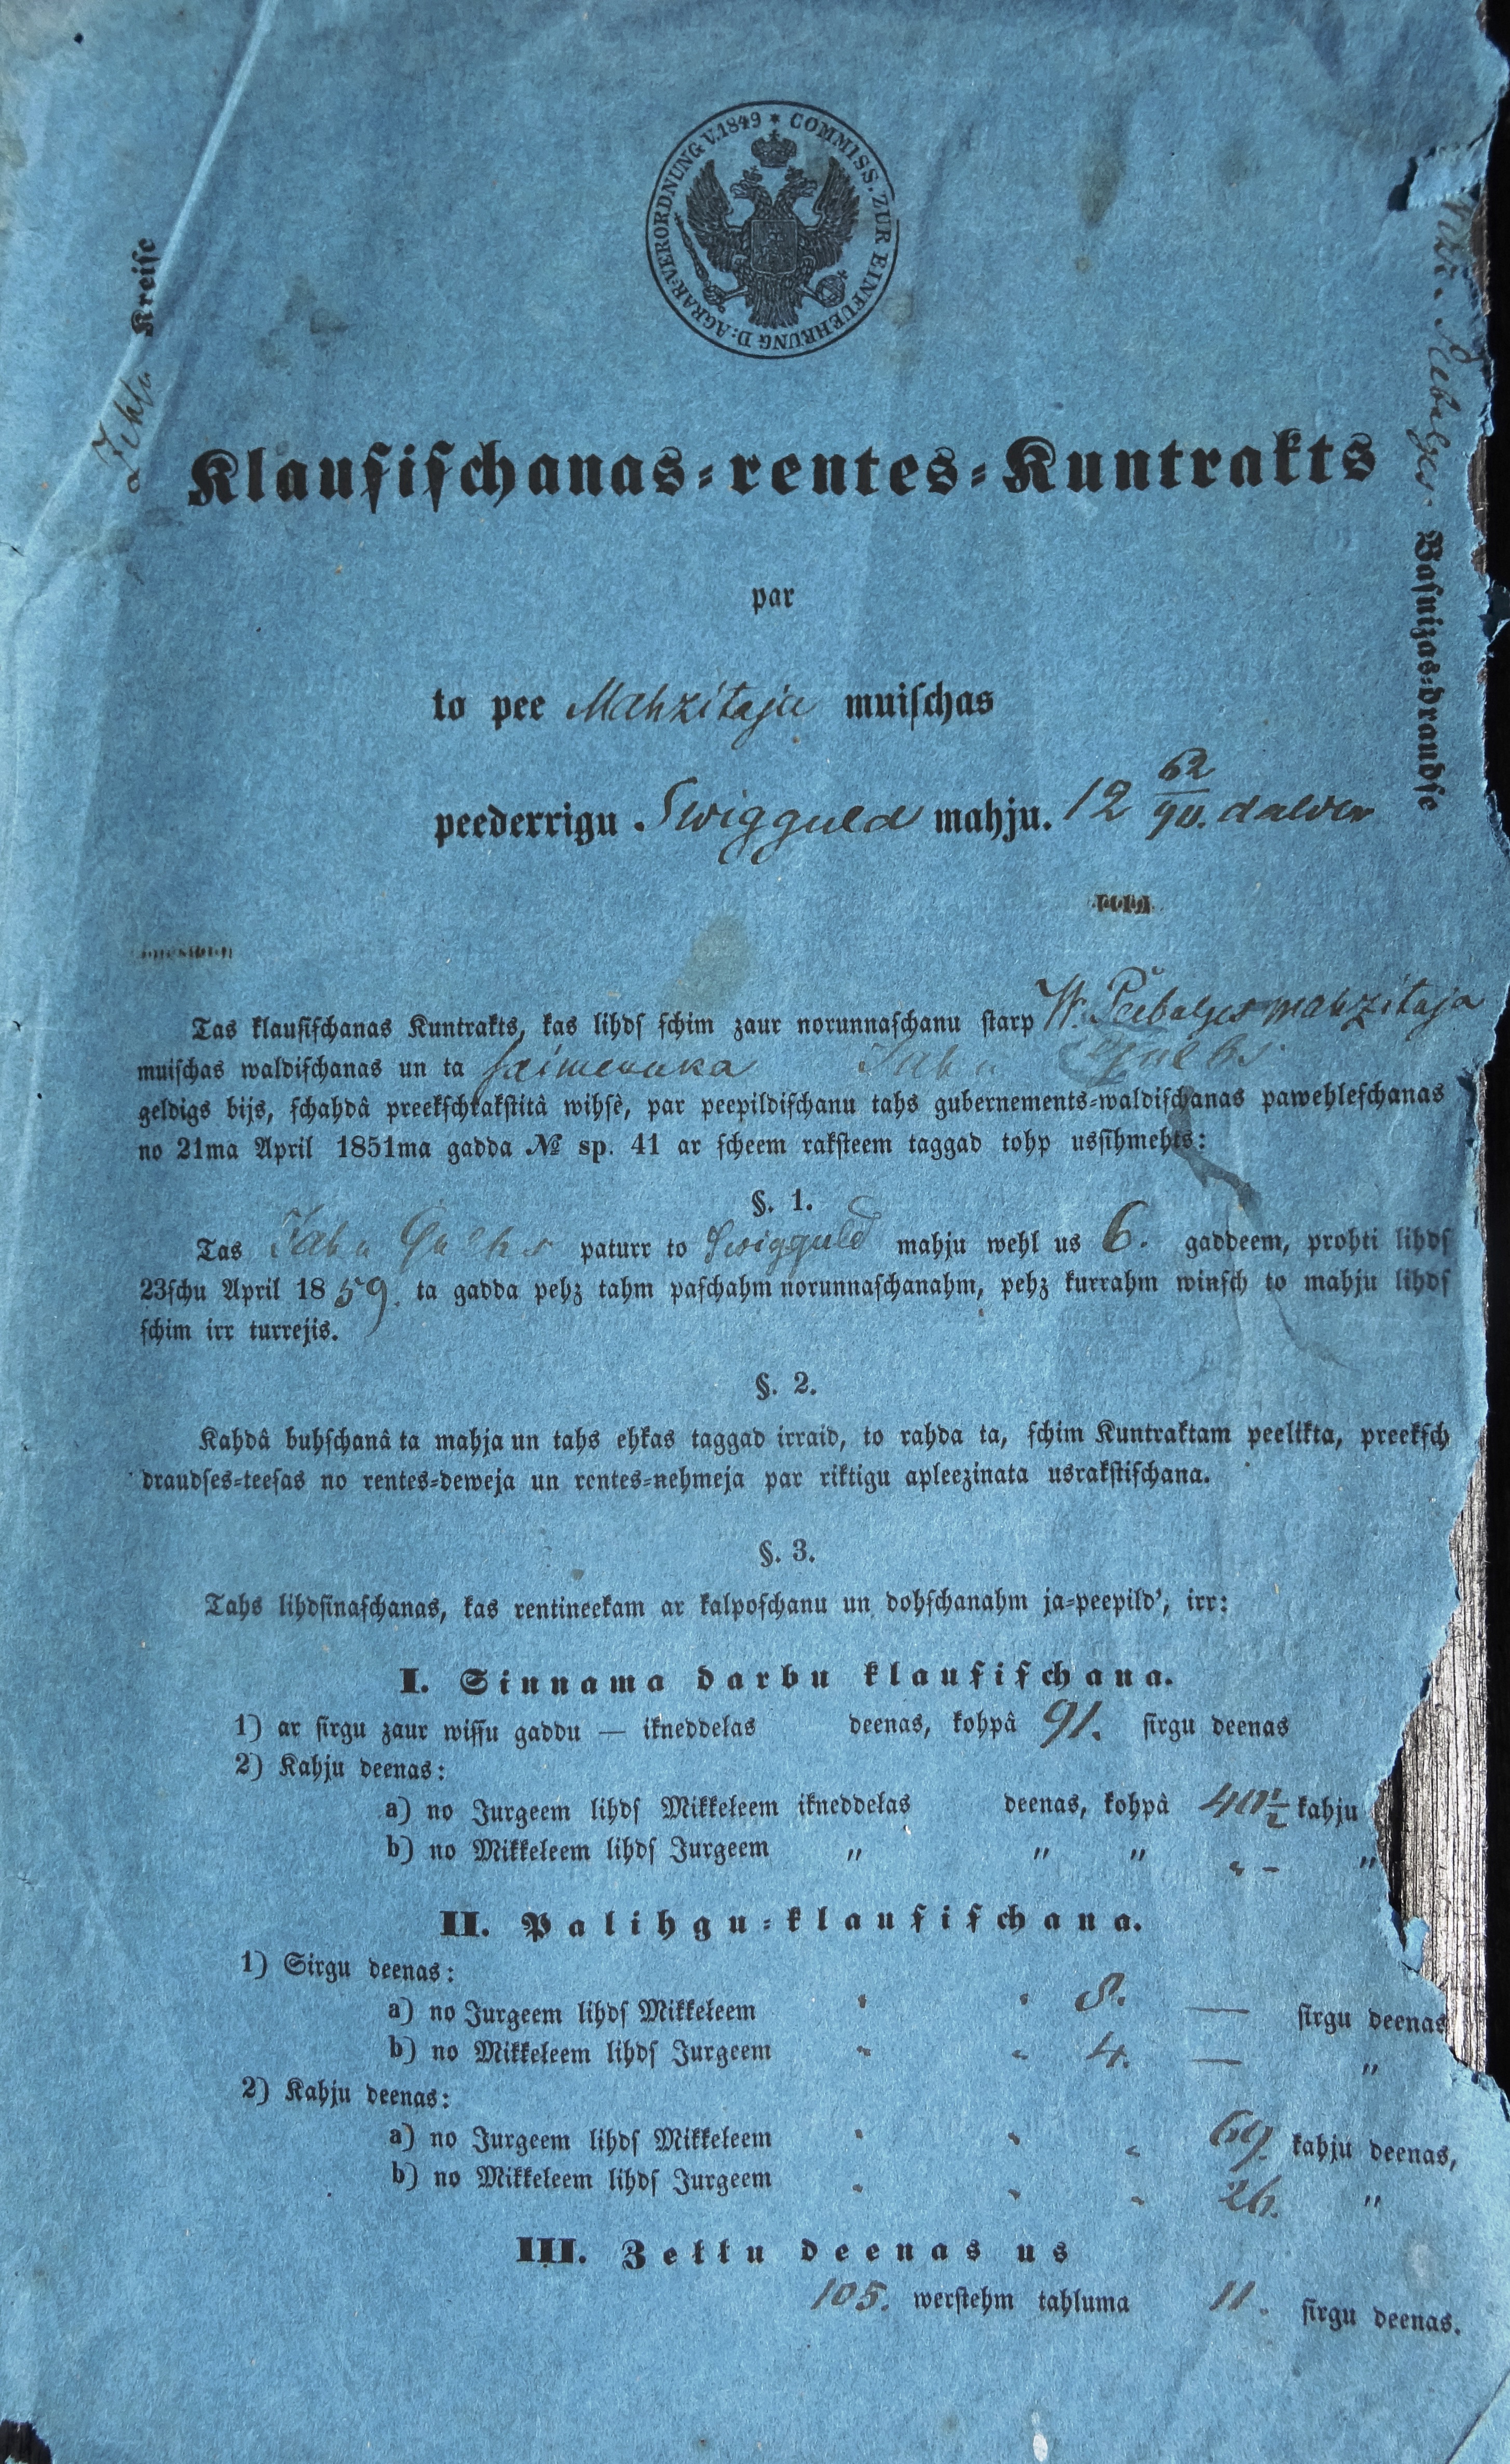 COMMISS. ZUR EINFUEHRUNG D: AGRAR-VERORDNUNG V. 1849 *
Kreiſe
Baſnizas-draudſe
Klauſiſchanas-rentes-Kuntrakts
par
to pee Mahzitaja muiſchas
peederrigu Swigguld mahju. 12 62/90. dalder
Tas klauſiſchanas Kuntrakts, kas lihdſ ſchim zaur norunnaſchanu ſtarp W. Peebalges mahzitaja
muiſchas waldiſchanas un ta ſaimeneeka Jahn Gulbs
geldigs bijs, ſchahdâ preekſchrakſtitâ wihſê, par peepildiſchanu tahs gubernements-waldiſchanas pawehleſchanas
no 21ma April 1851ma gadda № sp. 41 ar ſcheem rakſteem taggad tohp usſihmehts:
§. 1.
Tas Jahn Gulbs paturr to Swigguld mahju wehl us 6. gaddeem, prohti lihdſ
23ſchu April 1859. ta gadda pehz tahm paſchahm norunnaſchanahm, pehz kurrahm winſch to mahju lihdſ
ſchim irr turrejis.
§. 2.
Kahdâ buhſchanâ ta mahja un tahs ehkas taggad irraid, to rahda ta, ſchim Kuntraktam peelikta, preekſch
draudſes-teeſas no rentes-deweja un rentes-nehmeja par riktigu apleezinata usrakſtiſchana.
§. 3.
Tahs lihdſinaſchanas, kas rentineekam ar kalpoſchanu un dohſchanahm ja-peepild’, irr:
I. Sinnama darbu klauſiſchana.
1) ar ſirgu zaur wiſſu gaddu — ikneddelas deenas, kohpâ 91. ſirgu deenas
2) Kahju deenas:
a) no Jurgeem lihdſ Mikkeleem ikneddelas deenas, kohpâ 40½ kahju
b) no Mikkeleem lihdſ Jurgeem „ „ „ „ – „
II. Palihgu-klauſiſchana.
1) Sirgu deenas:
a) no Jurgeem lihdſ Mikkeleem " " 8. — ſirgu deenas
b) no Mikkeleem lihdſ Jurgeem " " 4. — „
2) Kahju deenas:
a) no Jurgeem lihdſ Mikkeleem " " " 69. kahju deenas,
b) no Mikkeleem lihdſ Jurgeem " " " 26. „
III. Zellu deenas us
105. werſtehm tahluma 11. ſirgu deenas.